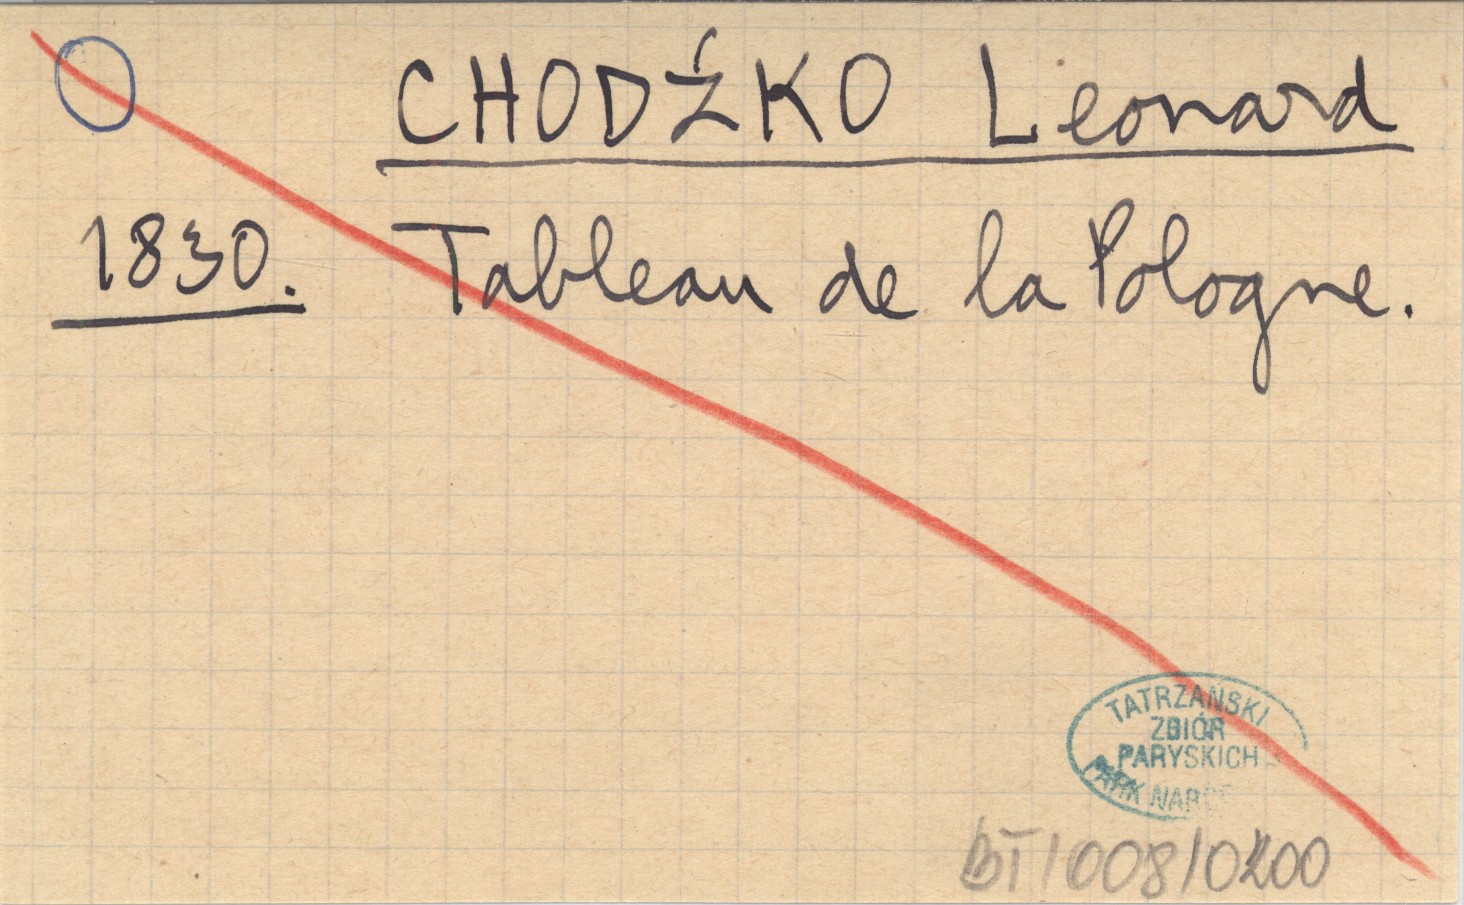 CHODŹKO Leonard
1830. Tableau de la Pologne.
TATRZAŃSKI
ZBIÓR
PARYSKICH
PARK NAR
BT/008/0200